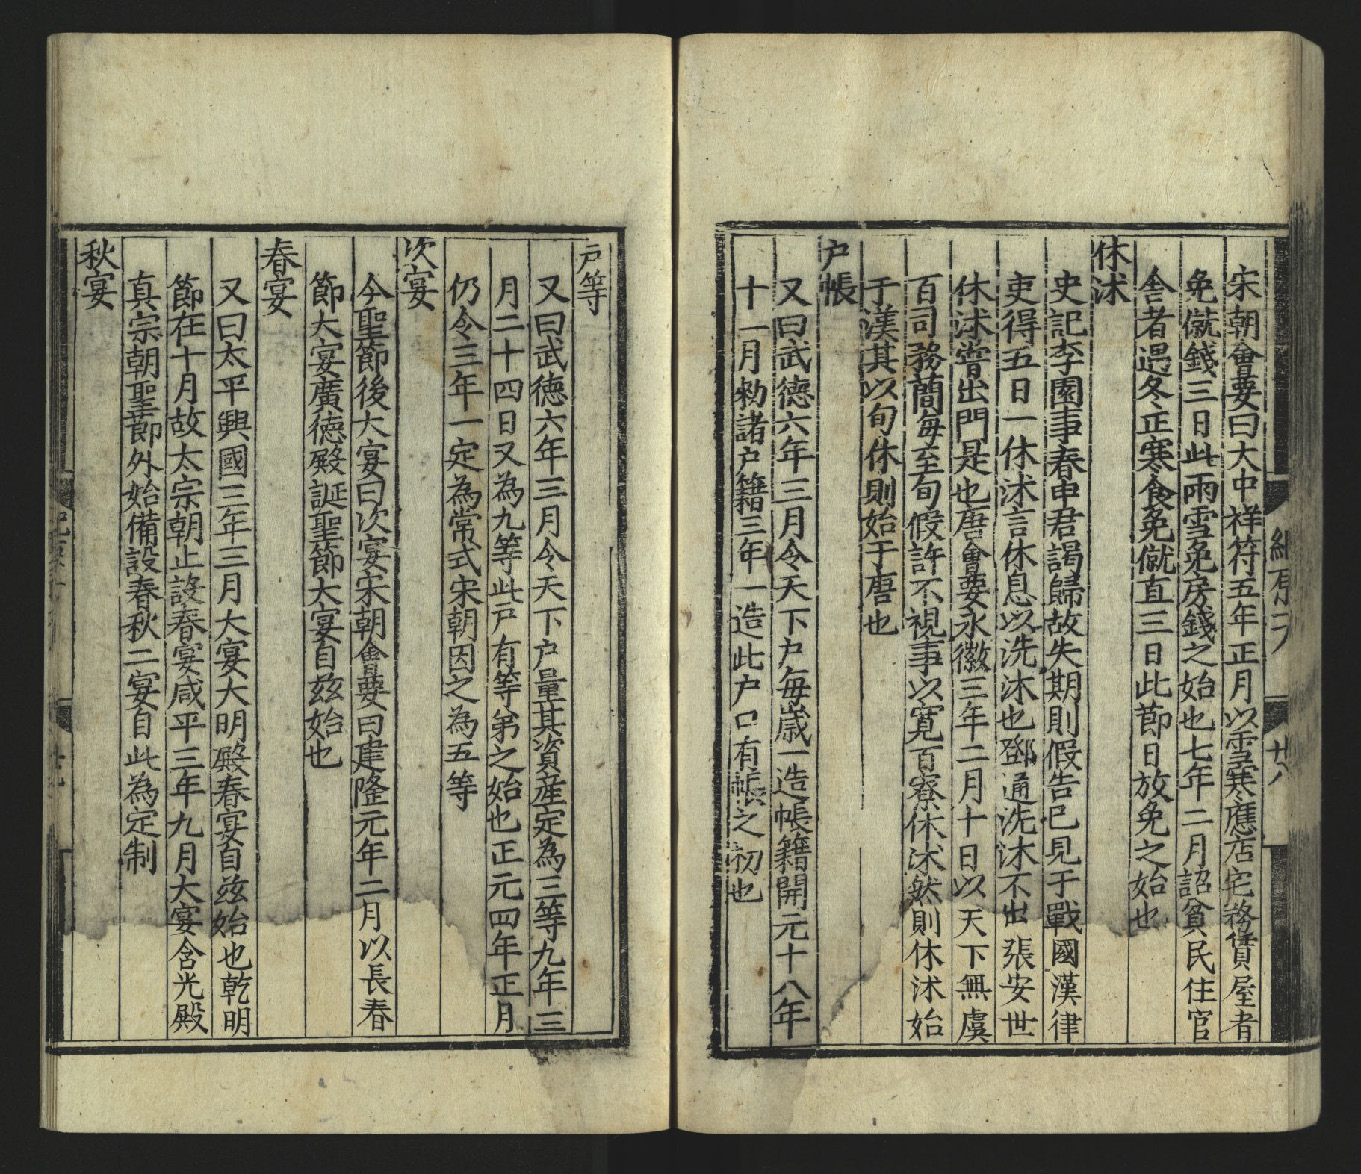 宋朝會要曰大中祥符五年正月以雪寒應店宅務賃屋者
免僦錢三日此雨雪免房錢之始也七年二月詔貧民住官
舍者遇冬正寒食免僦直三日此節日放免之始也
休沐
史記李園事春申君謁歸故失期則假告已見于戰國漢律
吏得五日一休沐言休息以洗沐也鄧通洗沐不出張安世
休沐嘗出門是也唐會要永徽三年二月十日以天下無虞
百司務簡每至旬假許不視事以寬百寮休沐然則休沐始
于漢其以旬休則始于唐也
户帳
又曰武德六年三月令天下户每歲一造帳籍開元十八年
十一月勑諸户籍三年一造此户口有帳之初也
户等
又曰武德六年三月令天下户量其資産定為三等九年三
月二十四日又為九等此户有等第之始也正元四年正月
仍令三年一定為常式宋朝因之為五等
次宴
今聖節後大宴曰次宴宋朝會要曰建隆元年二月以長春
節大宴廣德殿誕聖節大宴自兹始也
春宴
又曰太平興國三年三月大宴大明殿春宴自兹始也乾明
節在十月故太宗朝止設春宴咸平三年九月大宴含光殿
真宗朝聖節外始備設春秋二宴自此為定制
秋宴
廿八